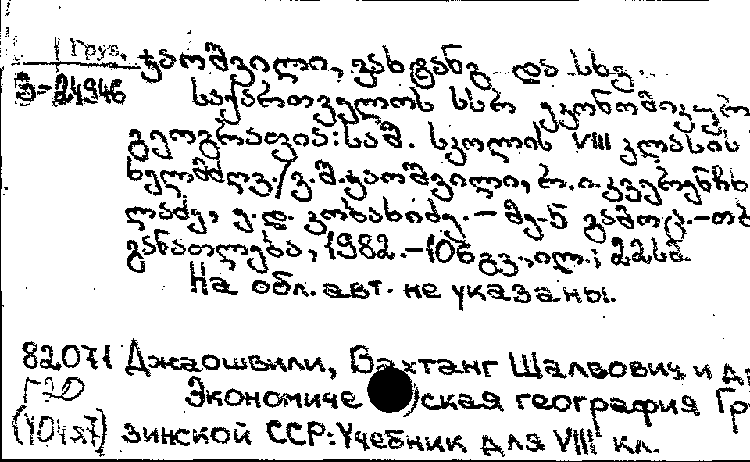 Груз. ჯაოშვილი, ვახტანგ და სხვ.
შ-24946 საქართველოს სსრ ეკონომიკური
გეოგრაფია: საშ. სკოლის VIII კლასის
სელმძღვ./ვ.შ.ჯაოშვილი, რ.ი.კვერენჩხი
ლაძე, ე.დ. კობახიძე. – მე-5 გამოც. – თბ
განათლება, 1982. – 106 გვ., ილ.; 22სმ.
На обл. авт. не указаны.
82071 Джаошвили, Вахтанг Шалвович и др
Г20 Экономиче ская география Гру
(104х7) зинской ССР: Учебник для VIII кл.